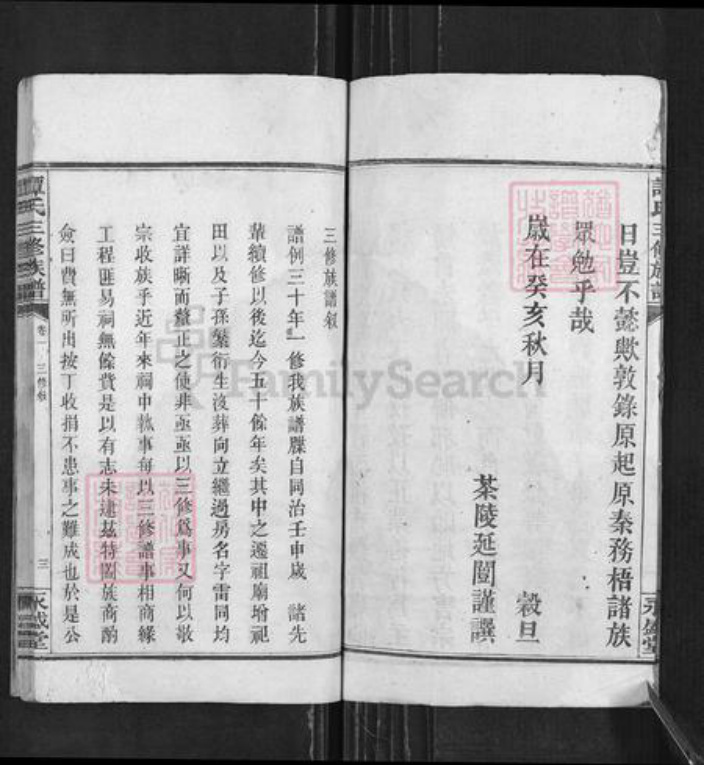 譚氏三修族譜
日豈不懿歟敦錄原起原秦務梧諸族
眾勉乎哉
歲在癸亥秋月 穀旦
茶陵延闓謹譔
永盛堂
三修族譜叙
譜例三十年一修我族譜牒自同治壬申歲 諸先
輩續修以後迄今五十餘年矣其中之遷祖廟增祀
田以及子孫蕃衍生沒葬向立繼過房名字雷同均
宜詳晰而釐正之使非亟亟以三修為事又何以敬
宗收族乎近年來祠中執事每以三修譜事相商緣
工程匪易祠無餘費是以有志未逮茲特闔族商酌
僉曰費無所出按丁收捐不患事之難成也於是公
譚氏三修族譜
卷一 三修叙
三
永盛堂
FamilySearch